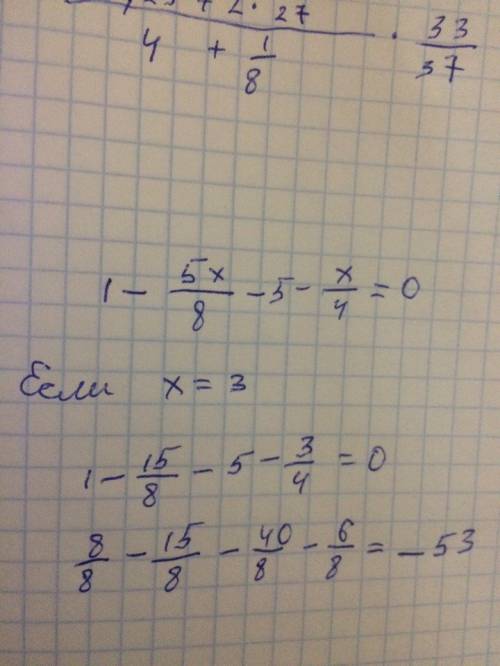 27
4 + 1/8 · 33/37
1 - 5x/8 - 5 - x/4 = 0
Если x = 3
1 - 15/8 - 5 - 3/4 = 0
8/8 - 15/8 - 40/8 - 6/8 = - 53